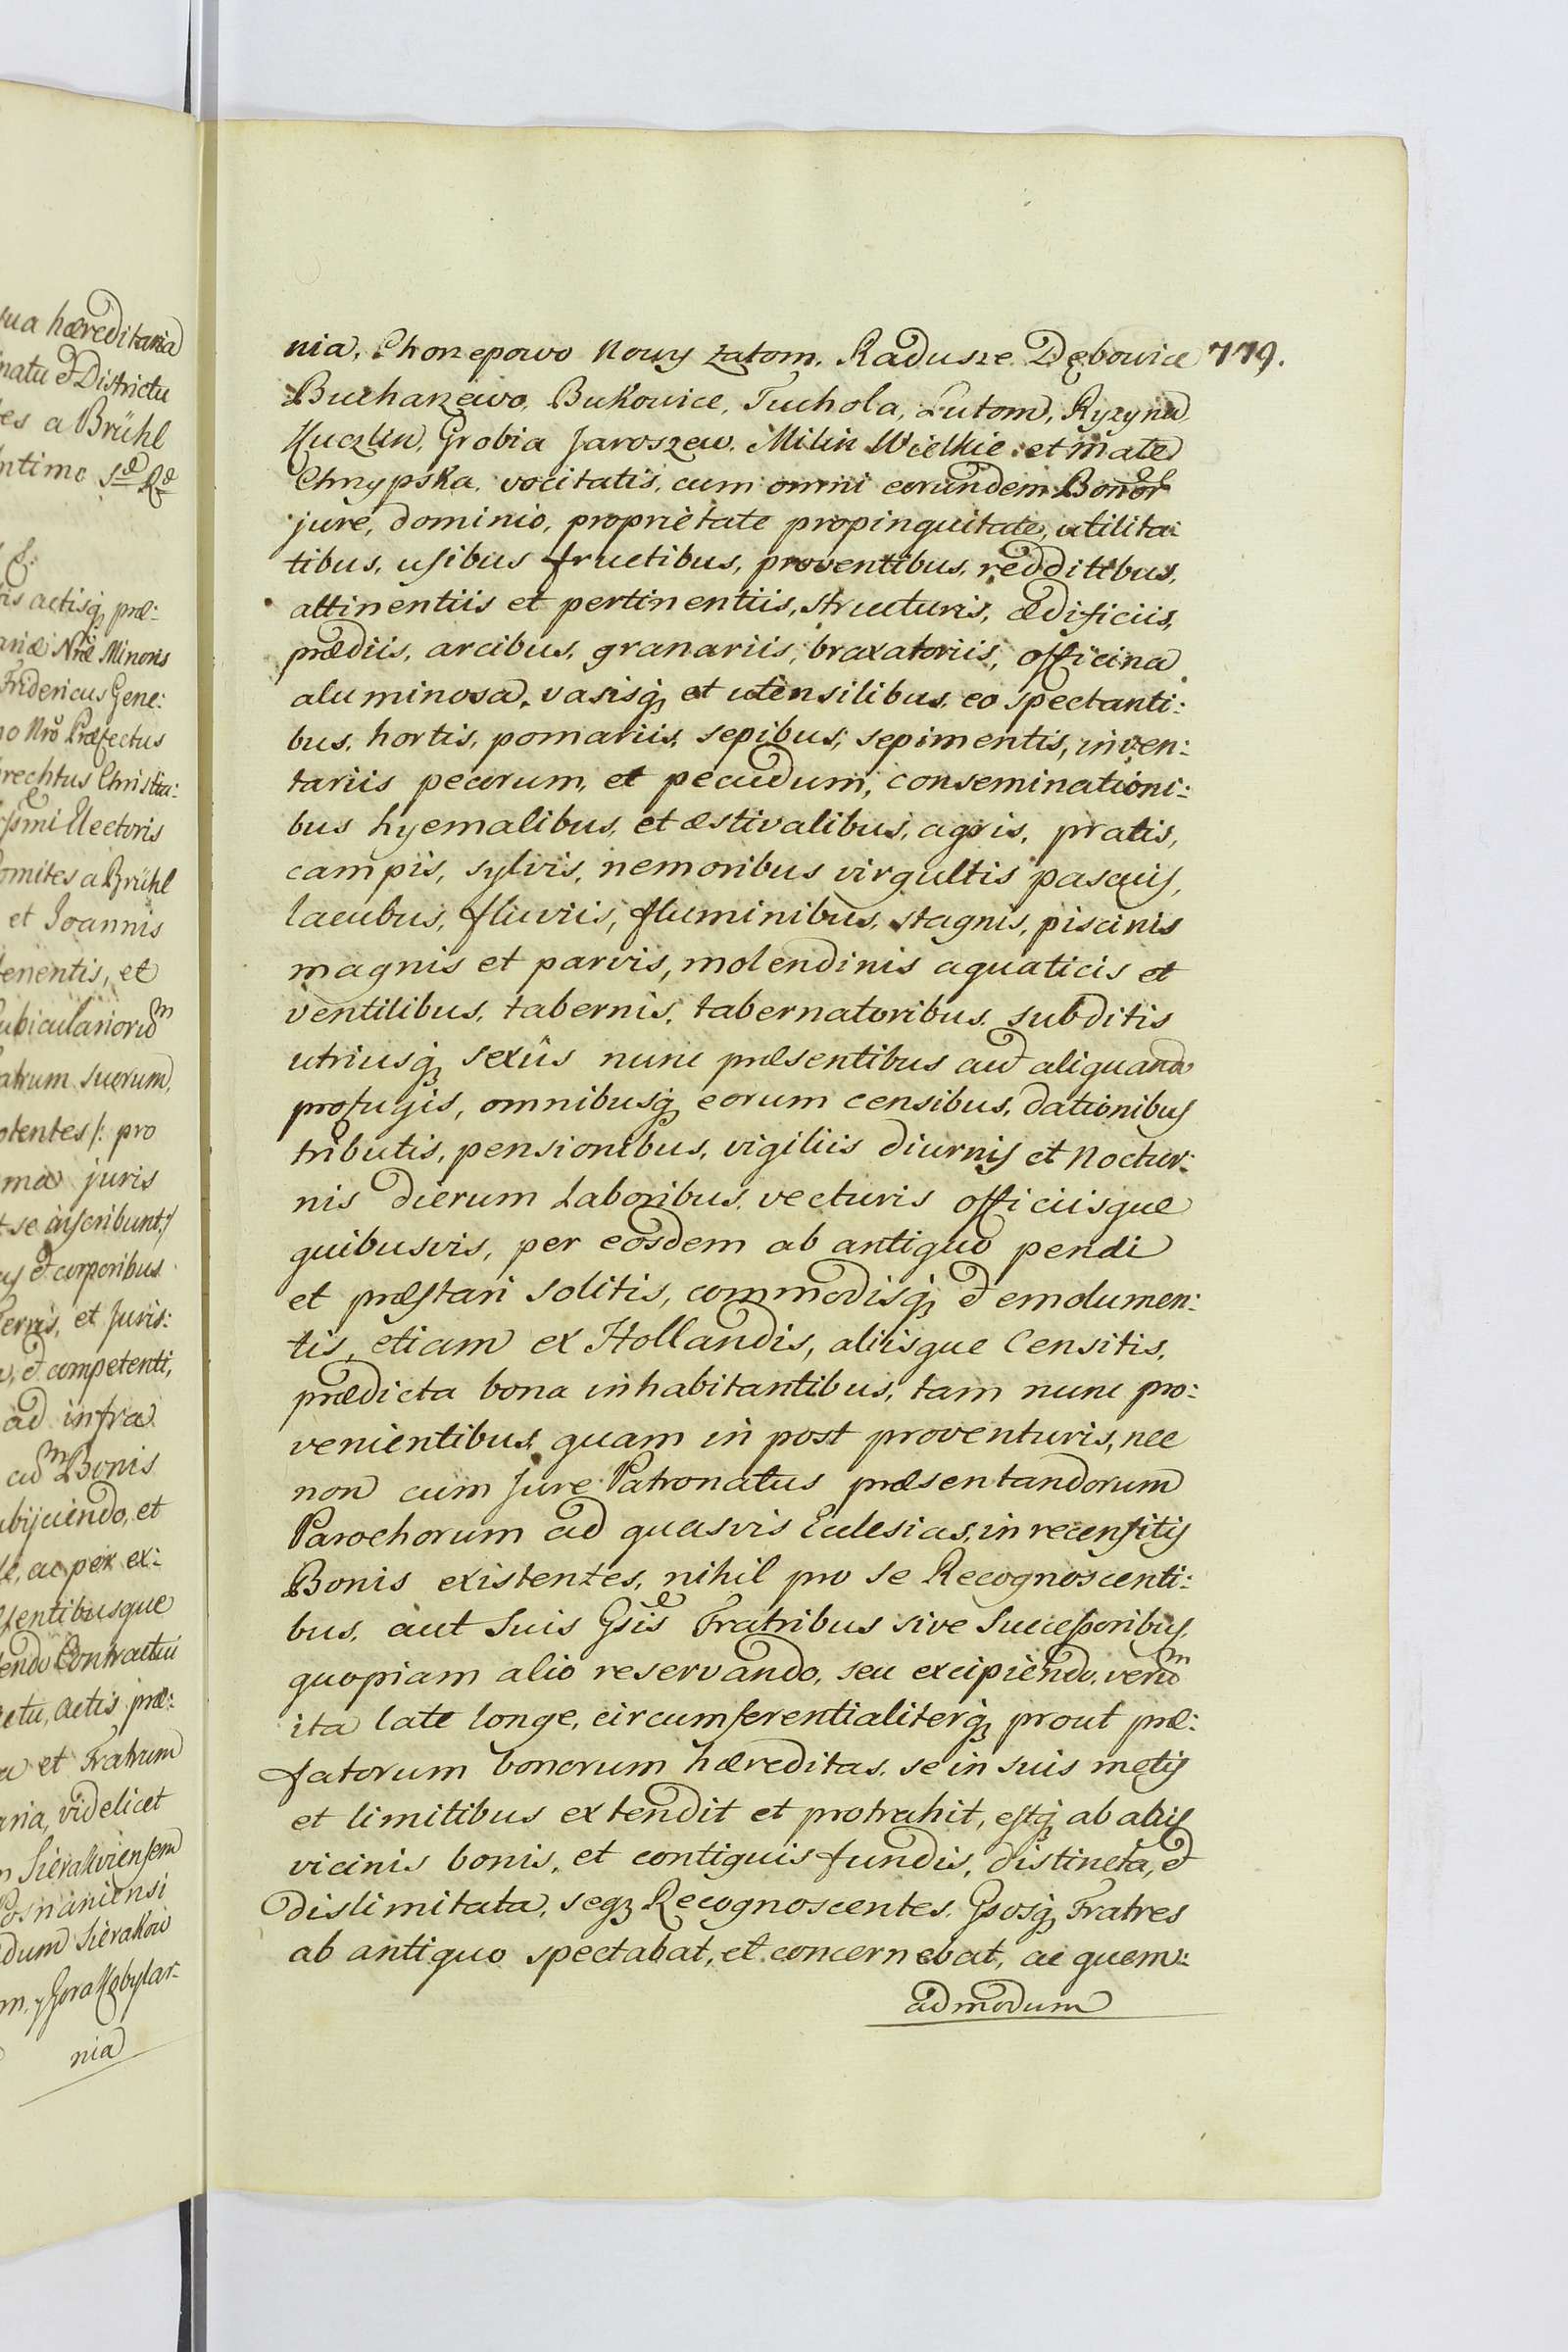 sua hæreditaria
natu et Districtu
tes a Brühl
ntimo
ris actisq præ:
Minoris
Fridericus Gene:
no Nro Præfectus
brechtus Christia:
ssmi Electoris
omites a Brühl
et Joannis
tenentis, et
ubiculariorum
atrum suorum,
otentes /: pro
ma juris
t se inscribunt :/
et corporibus
terris, et Juris:
et competenti,
ad infra
Bonis
ubijciendo, et
ac per ex:
sentibusque
endo Contractui
ctu, Actis præ:
a et Fratrum
aria, videlicet
m Sierakviensem
Posnaniensi
dum Sierakow
m, y Gora Kobylar:
nia
nia, Chorzepowo Nowy Zatom, Radusze Dębowice 779.
Bucharzewo, Bukowice, Tuchola, Lutom, Ryzyna,
Kuczlin, Grobia Jaroszew, Milin Wielkie et małe
Chrzypska, vocitatis, cum omni eorundem Bonor
jure, dominio, proprietate propinquitate, utilita:
tibus, usibus fructibus, proventibus, redditibus,
attinentiis et pertinentiis, structuris, ædificiis,
prædiis, arcibus, granariis, braxatoriis, officina
aluminosa, vasisq et utensilibus eo spectanti:
bus, hortis, pomariis, sepibus, sepimentis, inven:
tariis pecorum, et pecudum, conseminationi:
bus hyemalibus, et æstivalibus, agris, pratis,
campis, sylvis, nemoribus virgultis pascuis,
lacubus, fluviis, fluminibus, stagnis, piscinis
magnis et parvis, molendinis aquaticis et
ventilibus, tabernis, tabernatoribus, subditis
utriusq sexûs nunc præsentibus aut aliquando
profugis, omnibusq eorum censibus, dationibus
tributis, pensionibus, vigiliis diurnis et noctur:
nis dierum laboribus, vecturis officiisque
quibusvis, per eosdem ab antiquo pendi
et præstari solitis, commodisq et emolumen:
tis, etiam ex Hollandis, aliisque Censitis,
prædicta bona inhabitantibus, tam nunc pro:
venientibus quam in post proventuris, nec
non cum Jure Patronatus præsentandorum
Parochorum ad quasvis Ecclesias, in recensitis
Bonis existentes, nihil pro se Recognoscenti:
bus, aut suis Gsis Fratribus sive Successoribus,
quopiam alio reservando, seu excipiendo, verum
ita late longe, circumferentialiterq prout præ:
fatorum bonorum hæreditas, se in suis metis
et limitibus extendit et protrahit, estq ab aliis
vicinis bonis, et contiguis fundis, distincta, et
dislimitata, seq Recognoscentes, Gsosq Fratres
ab antiquo spectabat, et concernebat, ac quem:
admodum